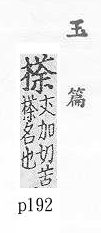 玉篇
𣘻
丈加切苦
𣘻名也
p192